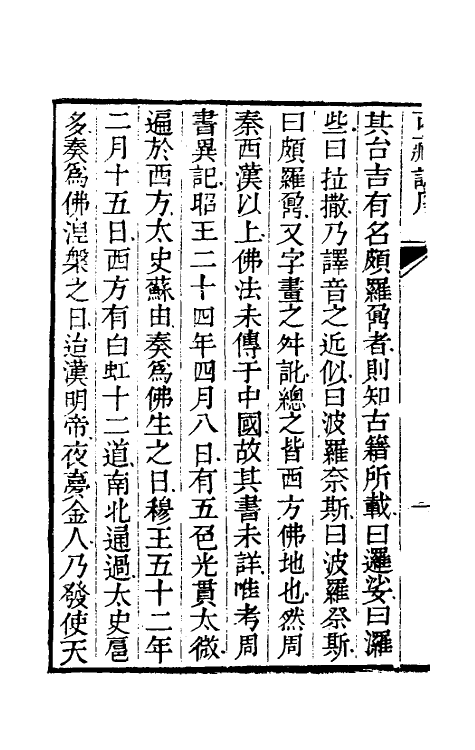 西藏記序
一
其台吉有名頗羅鼐者則知古籍所載曰邏娑曰灑
些曰拉撒乃譯音之近似曰波羅奈斯曰波羅奈斯
曰頗羅鼐又字畫之舛訛總之皆西方佛地也然周
秦西漢以上佛法未傳于中國故其書未詳唯考周
書異記昭王二十四年四月八日有五色光貫太微
遍於西方太史蘇由奏爲佛生之日穆王五十二年
二月十五日西方有白虹十二道南北通過太史扈
多奏爲佛涅槃之日迨漢明帝夜夢金人乃發使天